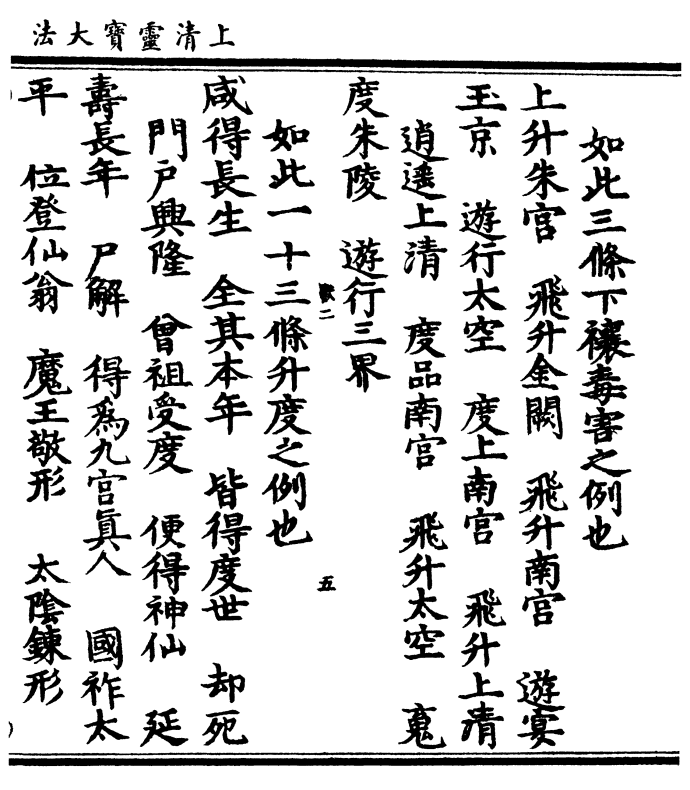 上清靈寶大法
如此三條下禳毒害之例也
上升朱宮　飛升金闕　飛升南宮　遊宴
玉京　遊行太空　度上南宮　飛升上清
逍遙上清　度品南宮　飛升太空　䰟
度朱陵　遊行三界
如此一十三條升度之例也
咸得長生　全其本年　皆得度世　却死
門戶興隆　曾祖受度　便得神仙　延
壽長年　尸解　得為九宮真人　國祚太
平　位登仙翁　魔王敬形　太陰鍊形
二
五